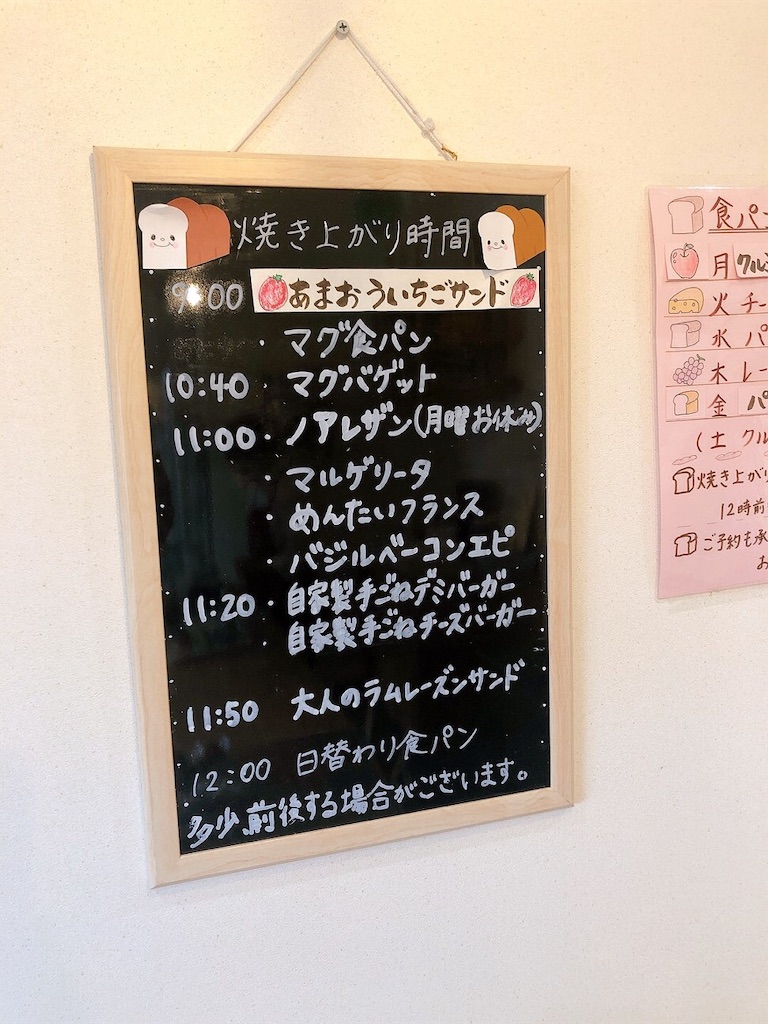 焼き上がり時間
9:00 あまおういちごサンド
・マグ食パン
10:40 ・マグバゲット
11:00 ・ノアレザン(月曜お休み)
・マルゲリータ
・めんたいフランス
・バジルベーコンエピ
11:20 ・自家製手ごねデミバーガー
・自家製手ごねチーズバーガー
11:50 大人のラムレーズンサンド
12:00 日替わり食パン
多少前後する場合がございます。
食パン
月 クル
火 チー
水 パ
木 レー
金 パ
(土 クル
焼き上がり
12時前
ご予約も承
お